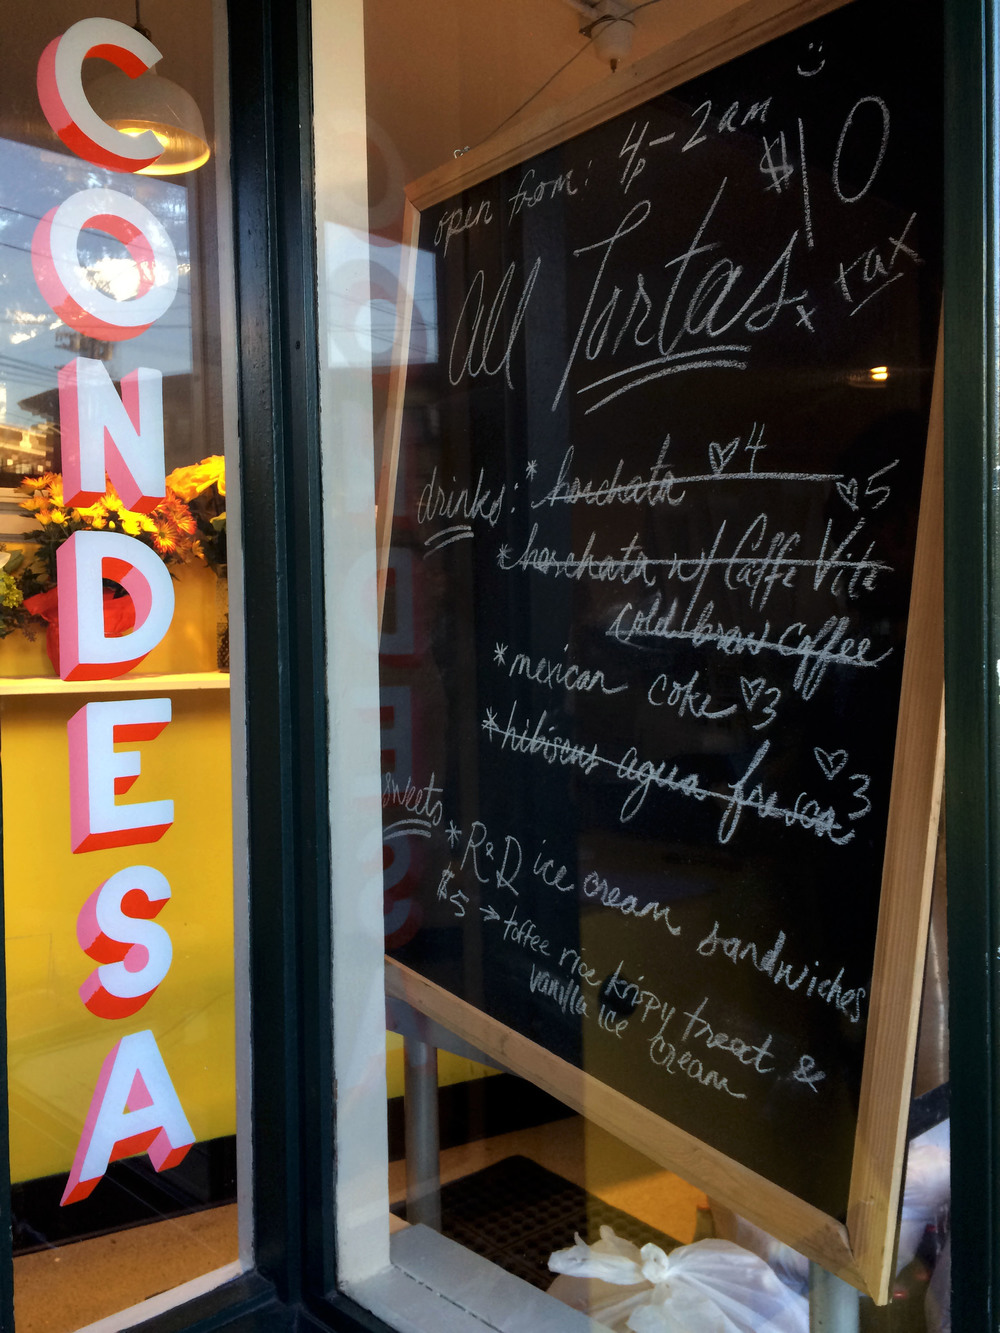 CONDESA
open from: 4p-2am
All Tortas $10
x tax
drinks: * horchata ♡4
* horchata w/ Caffe Vita ♡5
cold brew coffee
* mexican coke ♡3
* hibiscus agua fresca ♡3
sweets * R&D ice cream sandwiches
$5 → toffee rice krispy treat &
vanilla ice cream